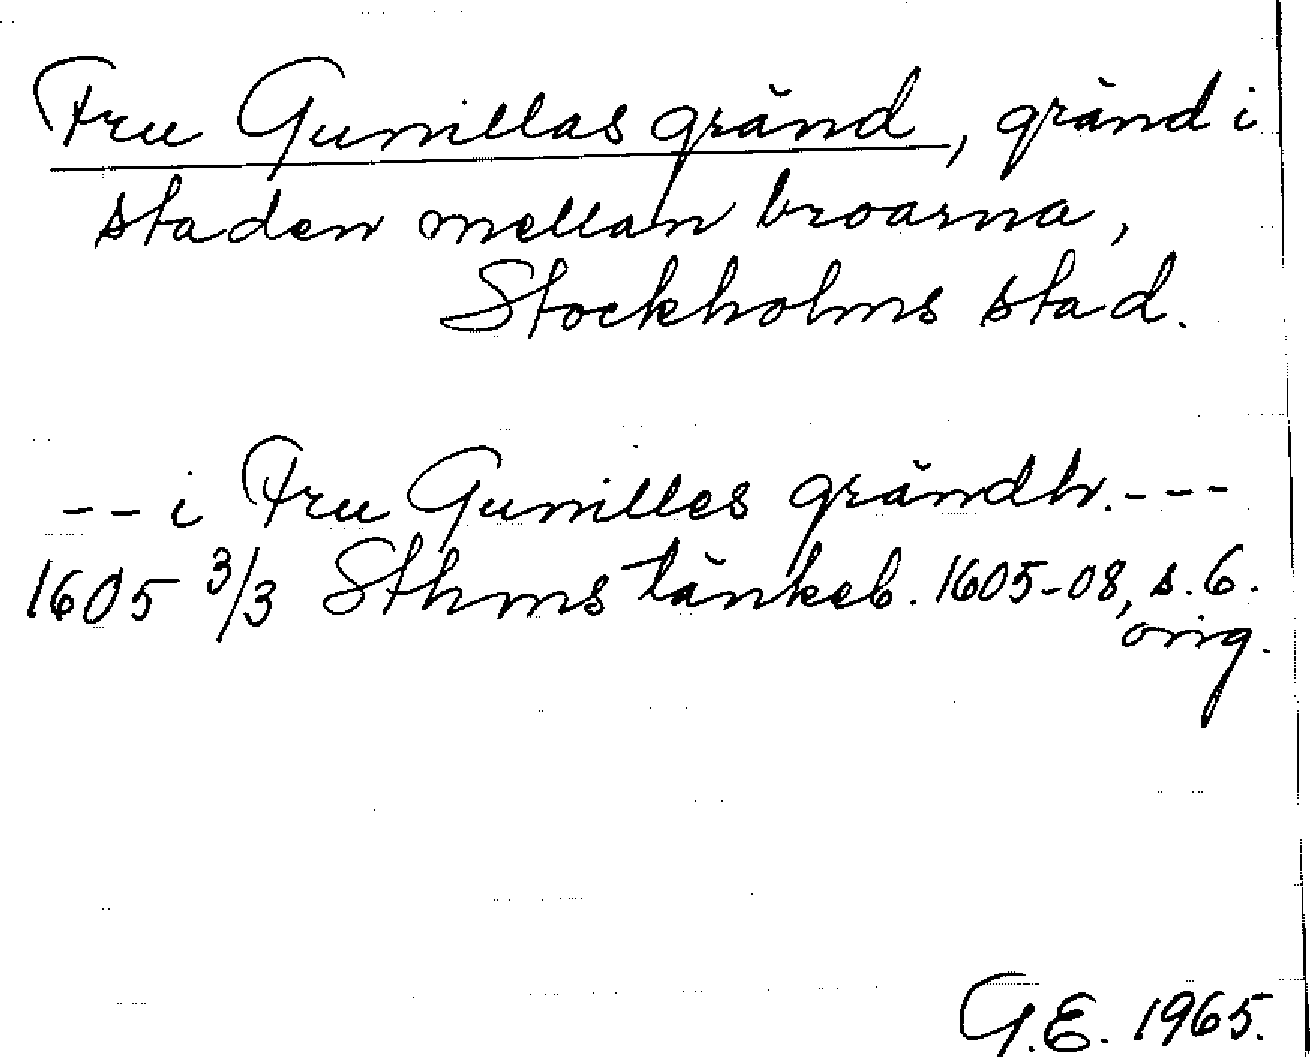 Fru Gunillas gränd, gränd i
staden mellan broarna,
Stockholms stad.
-- i Fru Gunilles grändh. ---
1605 3/3 Sthms tänkeb. 1605-08, s. 6.
orig.
G.E. 1965.